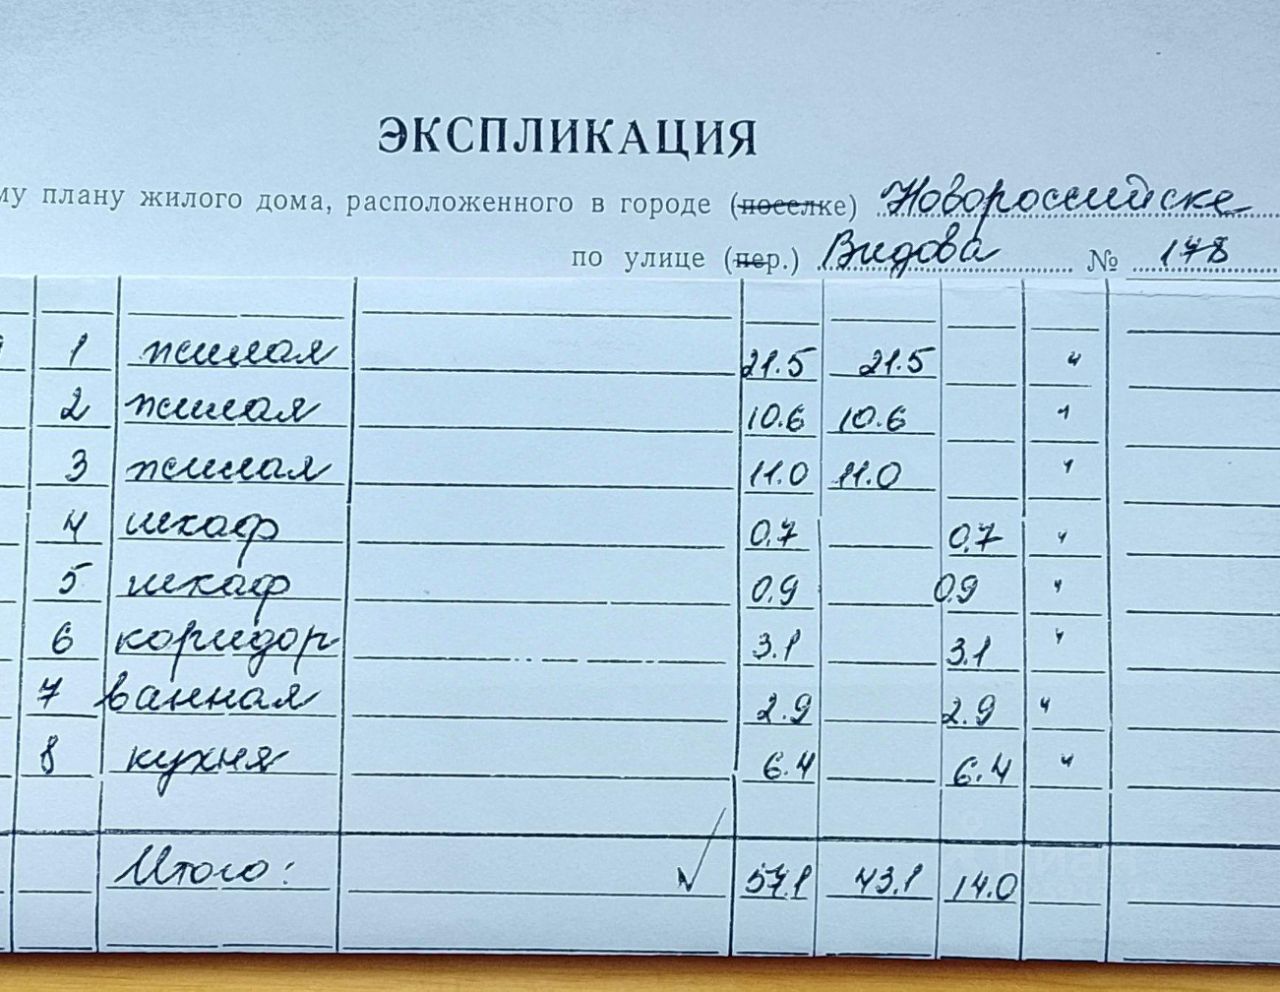 ЭКСПЛИКАЦИЯ
му плану жилого дома, расположенного в городе (поселке) Новороссийске
по улице (пер.) Видова № 178
1 жилая 21.5 21.5 "
2 жилая 10.6 10.6 "
3 жилая 11.0 11.0 "
4 шкаф 0.7 0.7 "
5 шкаф 0.9 0.9 "
6 коридор 3.1 3.1 "
7 ванная 2.9 2.9 "
8 кухня 6.4 6.4 "
Итого: 57.1 43.1 14.0